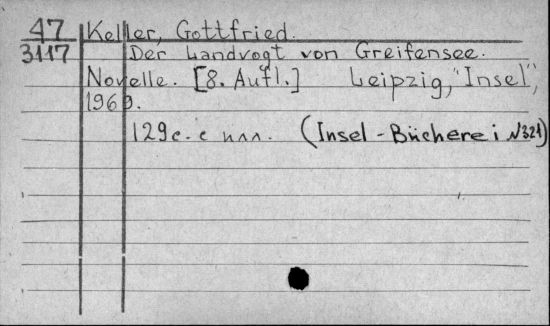 47 Keller, Gottfried.
3117 Der Landvogt von Greifensee.
Novelle. [8. Aufl.] Leipzig, "Insel",
1969.
129 с. с илл. (Insel-Bücherei N321)